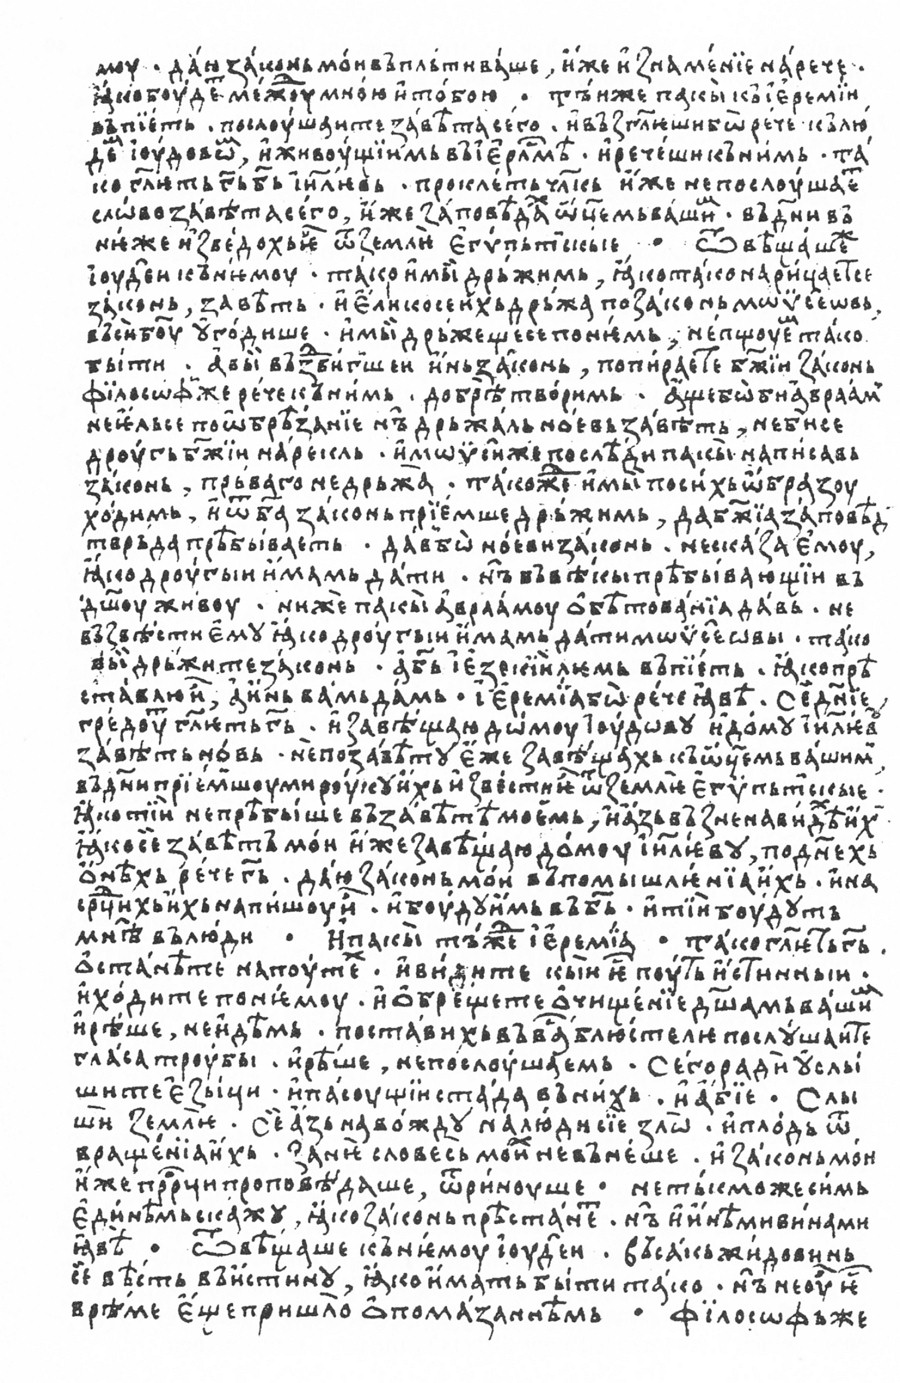 моу · даю законь мои въ пльти ваше, иже и знаменїе нарече ·
ꙗко боудⷷе межⷣоу мною и тобою · ть ниже пакы къ їеремїи
въпїеть · послоушаите завѣта сего · и въꙁг҃лѥши бѡ рече къ лю
деⷨ їоудовѡⷨ, и живоущїимь въ їерⷭ҇лмѣ · и речеши къ нимь · та
ко г҃лѥть г҃ь б҃ь їи҃лѥвь · проклеть чл҃кь иже не послоушаеⷮ
слово завѣта сего, иже заповѣдаⷯ ѡц҃емь вашиⷨ · въ д҃ни въ
нѥже изведохь ѥ ѿ землѥ егѵпьтьскые · ѿвѣщаше
їоудеи къ нѥмоу · тако и мы дрьжимь, ꙗко тако нарицает се
законь, завѣть · и елико се ихь дрьжа по законь мѡѵсеѡвь,
вьси б҃оу угодише · и мы дрьжеще се по нѥмь, непщоуеⷨ тако
быти · а вы въздвигше инь законь, попираете б҃жїи законь
фїлосѡфже рече къ нимь · добрѣ творимь · аще бѡ би авраамⷨ
не ѥль се по ѡбрѣзанїе нъ дрьжаль ноевь завѣть, не би се
дроугь б҃жїи нареклъ · и мѡѵси же послѣди пакы написавь
законь, прьваго не дрьжа · такожⷣе и мы по сихь ѡбразоу
ходимь, и ѿ б҃а законь прїемше дрьжимь, да б҃жїа заповѣдⷣ
тврьда прѣбываеть · давь бѡ ноеви законь · не сказа ему,
ꙗко дроугыи имамь дати · нъ въ вѣкы прѣбывающїи въ
д҃шоу живоу · ниже пакы авраамоу обѣтованїа давь · не
възвѣсти ему ꙗко дроугыи имамь дати мѡѵсеѡвы · тако
вы дрьжите законь · а б҃ь їезекїилѥмь въпїеть · ꙗко прѣ
ставлю и, а инь вамь дамь · їеремїа бѡ рече ꙗвѣ · се д҃нїе
гредоуⷮ г҃лѥть г҃ь · и завѣщаю дѡмоу їоудову и дому їи҃лѥвⷹ
завѣть новь · не по завѣту еже завѣщахь къ ѡц҃емь вашимⷨ,
въ д҃ни прїемшоу ми роуку ихь извести ѥ ѿ землѥ егѵпьтьскые ·
ꙗко тїи не прѣбыше въ завѣтѣ моемь, и азь възненавидѣхⷯ ихⷯ
ꙗко се завѣть мои иже завѣщаю домоу їи҃лѥву, по д҃нехь
онѣхь рече г҃ь · даю законь мои въ помышлѥнїа ихь · и на
ср҃ⷣцихь ихь напишоу и · и боуду имь въ б҃ь · и тїи боудуть
мнѣ въ люди · и пакы тьжⷣе їеремїа · тако г҃лѥть г҃ь ·
останѣте на поутеⷯ · и видите кыи ѥ поуть истинныи ·
и ходите по нѥмоу · и обрещете очищенїе д҃шамь вашиⷨ
и рѣше, не идѣмь · поставихь въ ва блюстелѥ послушаите
гласа троубы · и рѣше, не послоушаемь · сего ради услы
шите езыци · и пасоущїи стада въ нихь · и абїе · слы
ши землѥ · се азь навожду на люди сїе зло · и плодь ѿ
вращенїа ихь · зане словесь моиⷯ не вънеше · и законь мои
иже пр҃рⷪци проповѣдаше, ѿриноуше · не тькмо же симь
единѣмь скажу, ꙗко законь прѣстанеⷮ · нъ и инѣми винами
ꙗвѣ · ѿвѣщаше къ нѥмоу їоудеи · вьсакь жидовинь
се вѣсть въ истину, ꙗко имать быти тако · нъ не оу ѥ
врѣме еще пришло о помазаннѣмь · фїлосѡфь же